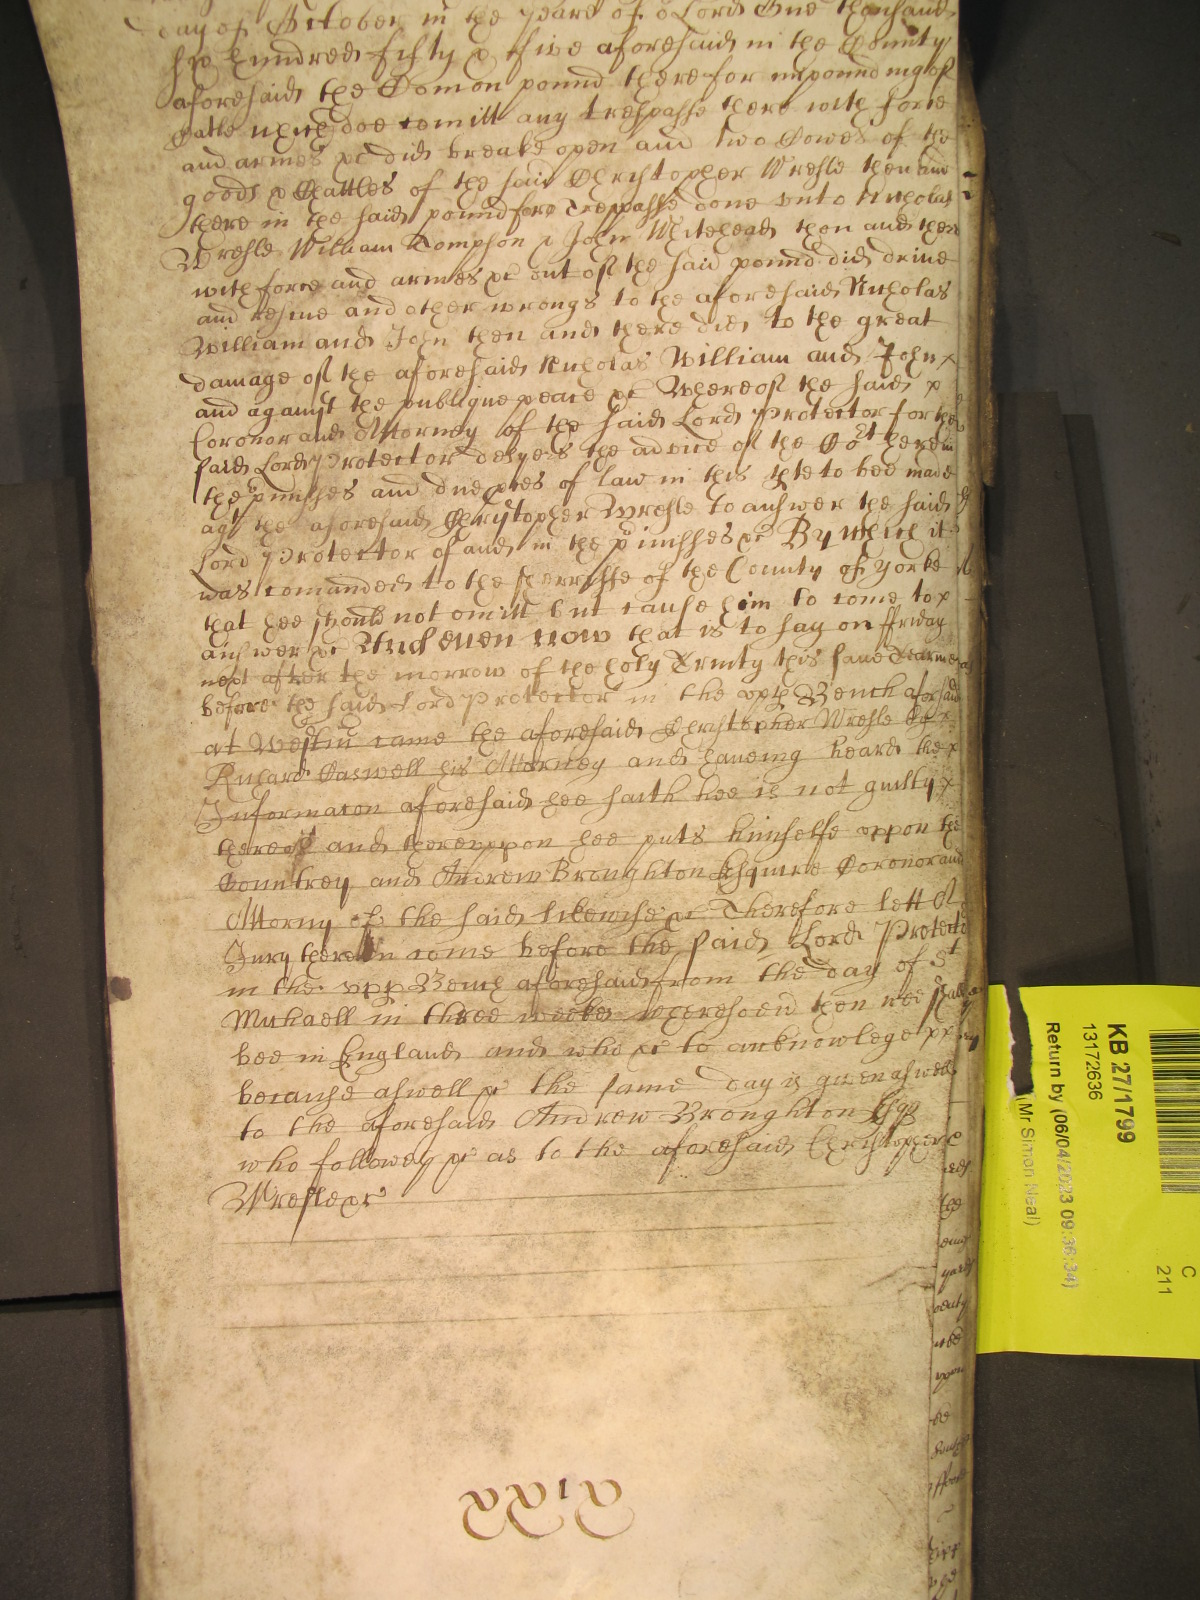 day of October in the yeare of oʳ Lord One thousand
six hundred fifty & five aforesaid in the County
aforesaid the Comon pound there for impounding of
Catle which doe comitt any trespasse there with force
and armes &c did breake open and two Cowes of the
goods & Chattles of the said Christopher Wresle then and
there in the said pound for a Trespasse done unto Nicholas
Wresle William Tompson & John Whitehead then and there
with force and armes &c out of the said pound did drive
and reskue and other wrongs to the aforesaid Nicholas
William and John then and there did to the great
damage of the aforesaid Nicholas William and John x
and against the publique peace &c Whereof the said x
Coronor and Attorney of the said Lord Protector for the
said Lord Protector desyers the advice of the Coʳt herein
the pʳmisses and due pces of law in this pte to bee made
agᵗ the aforesaid Christopher Wresle to answer the said
Lord Protector of and in the pʳmisses &c By which it
was comanded to the Sherriffe of the County of Yorke
that hee should not omitt but cause him to come to x
answer &c And even now that is to say on ffriday
next after the morrow of the holy Trinity this same Tearme
before the said Lord Protector in the upp Bench aforesaid
at Westm came the aforesaid Christopher Wresle by x
Richard Caswell his Attorney and haveing heard the x
Informacon aforesaid hee saith hee is not guilty x
thereof and thereuppon hee puts himselfe uppon the
Countrey and Andrew Broughton Esquire Coronor and
Attorny of the said likewise &c Therefore lett A
Jury therein come before the said Lord Protector
in the upp Bench aforesaid from the day of Sᵗ
Michaell in three weekes wheresoevʳ then wee shall
bee in England and who &c to acknowlege xx
because aswell &c the same day is given aswell
to the aforesaid Andrew Broughton Esqʳ
who followes &c as to the aforesaid Christopher
Wresle &c
KB 27/1799
13172636
Return by (06/04/2023 09:36:34)
(Mr Simon Neal)
C
211